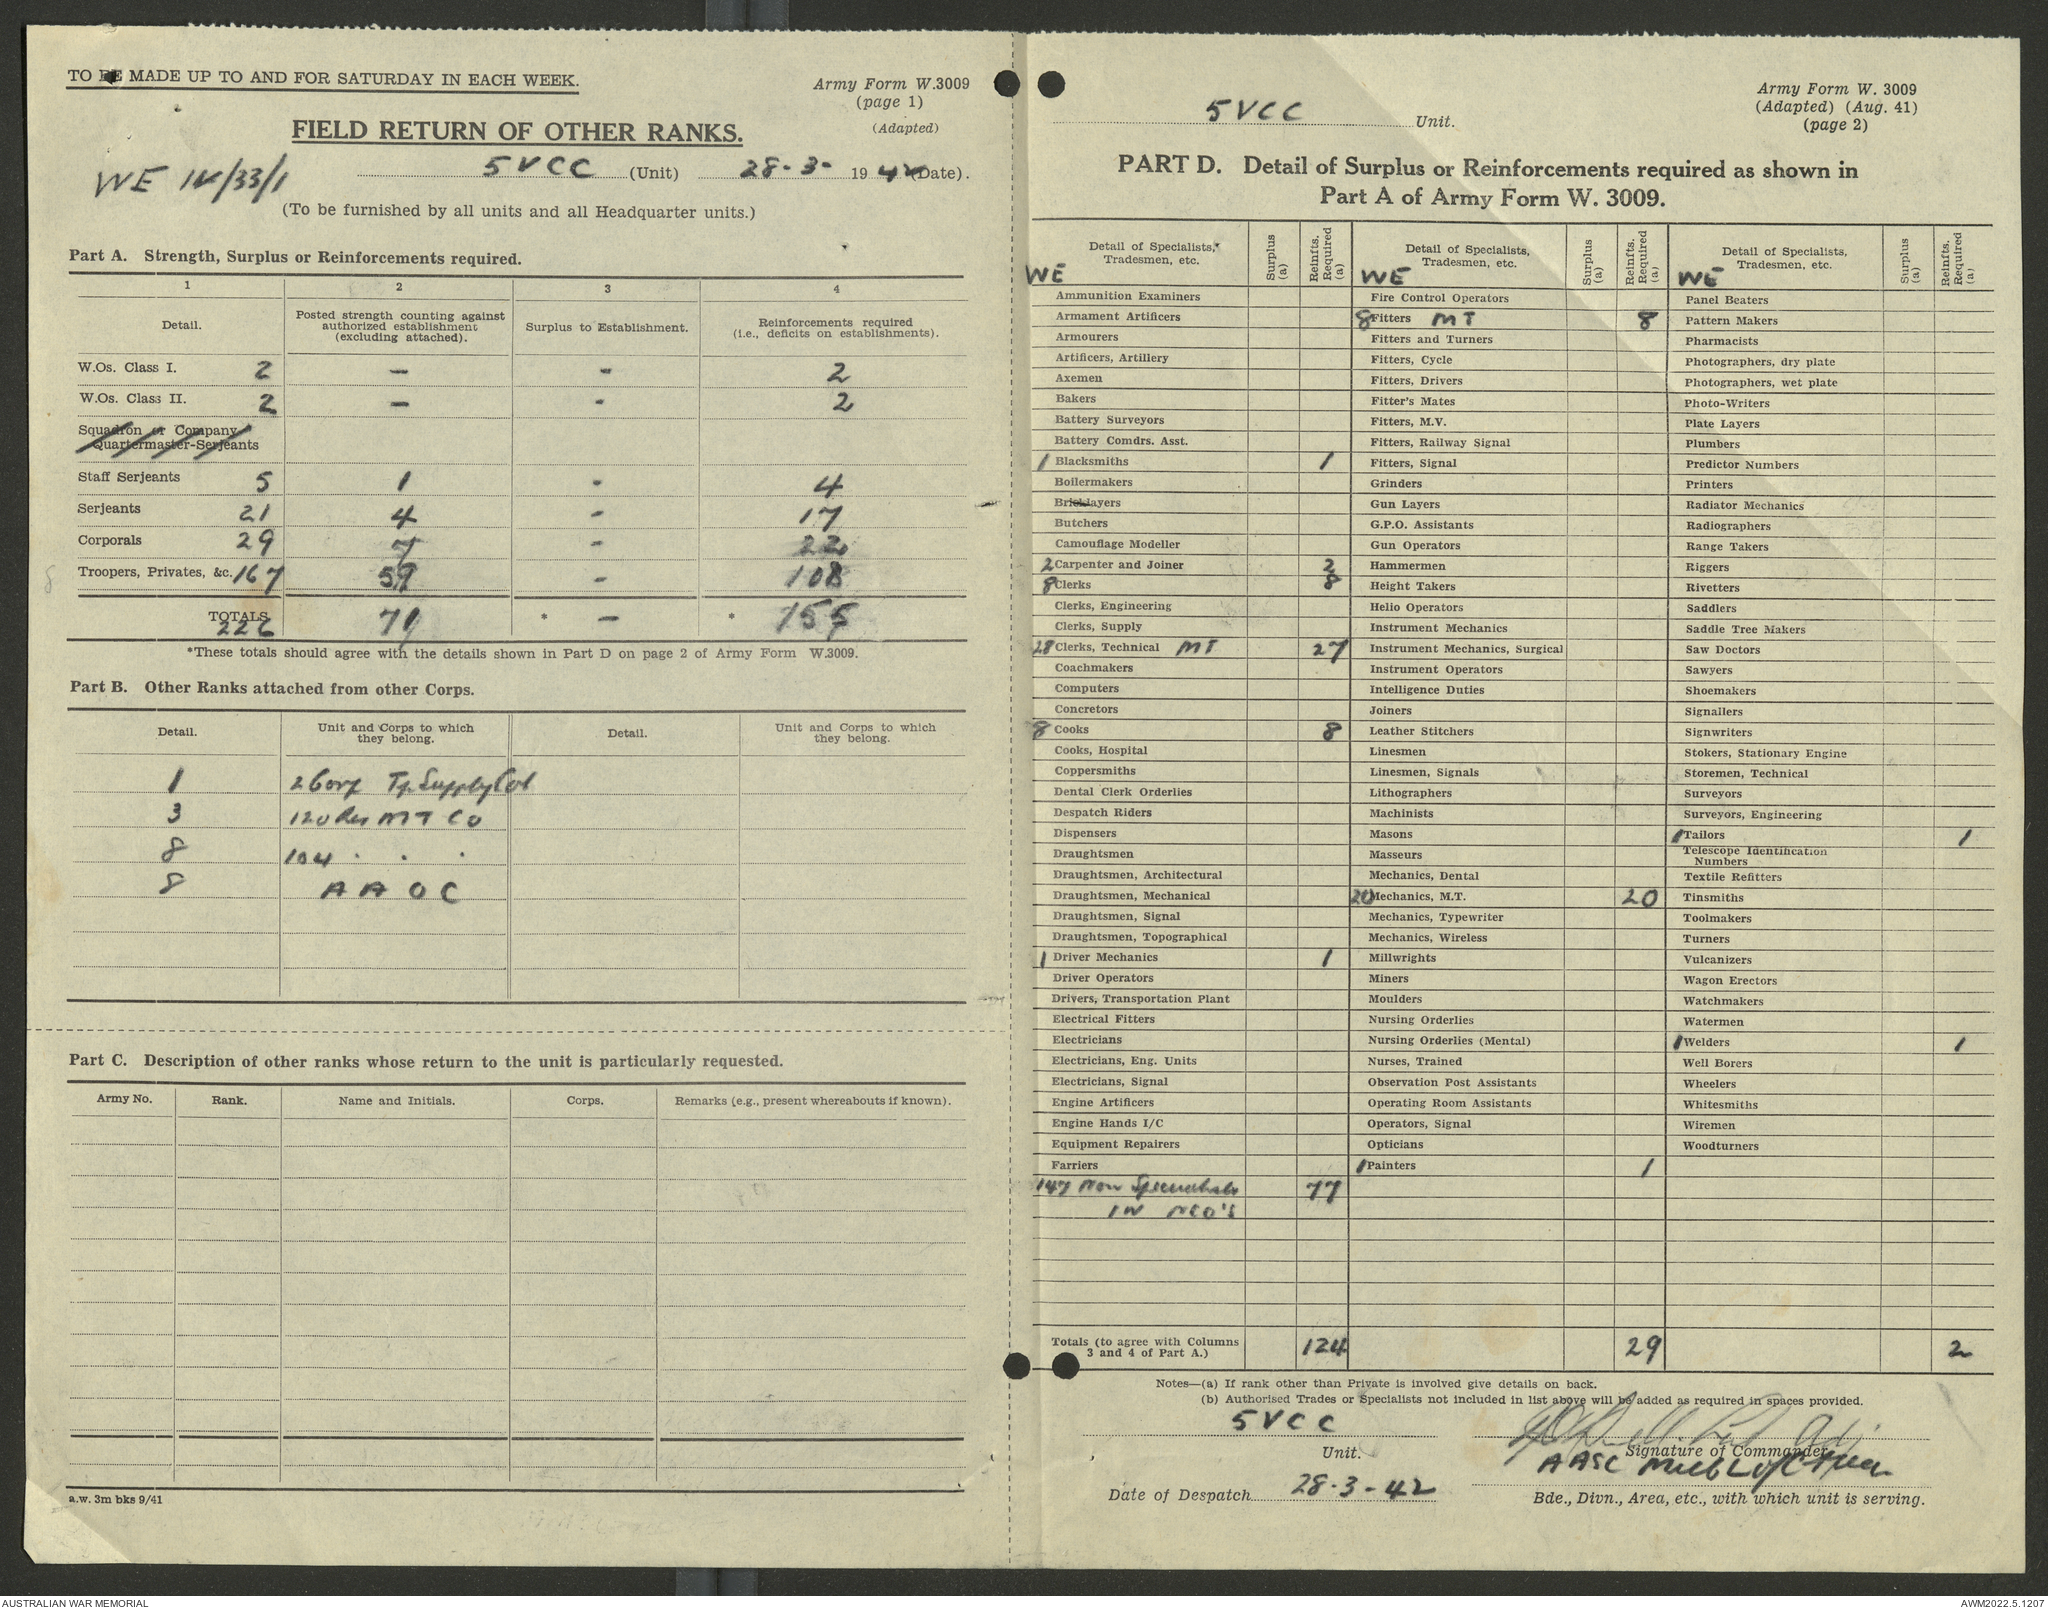 TO BE MADE UP TO AND FOR SATURDAY IN EACH WEEK.
Army Form W.3009
(page 1)
(Adapted)
FIELD RETURN OF OTHER RANKS.
WE IV/33/1
5 VCC (Unit) 28-3- 1942 (Date).
(To be furnished by all units and all Headquarter units.)
Part A. Strength, Surplus or Reinforcements required.
1 2 3 4
Detail. Posted strength counting against authorized establishment (excluding attached). Surplus to Establishment. Reinforcements required (i.e., deficits on establishments).
W.Os. Class I. 2 - - 2
W.Os. Class II. 2 - - 2
Squadron or Company
Quartermaster-Serjeants
Staff Serjeants 5 1 - 4
Serjeants 21 4 - 17
Corporals 29 7 - 22
Troopers, Privates, &c. 167 59 - 108
TOTALS 226 71 * - * 155
*These totals should agree with the details shown in Part D on page 2 of Army Form W.3009.
Part B. Other Ranks attached from other Corps.
Detail. Unit and Corps to which they belong. Detail. Unit and Corps to which they belong.
1 2 Corp Tp Supply Col
3 120 Res MT Co
8 104 . . .
8 A A O C
Part C. Description of other ranks whose return to the unit is particularly requested.
Army No. Rank. Name and Initials. Corps. Remarks (e.g., present whereabouts if known).
a.w. 3m bks 9/41
5 VCC Unit.
Army Form W. 3009
(Adapted) (Aug. 41)
(page 2)
PART D. Detail of Surplus or Reinforcements required as shown in
Part A of Army Form W. 3009.
Detail of Specialists, Tradesmen, etc. Surplus (a) Reinfts. Required (a)
WE
Ammunition Examiners
Armament Artificers
Armourers
Artificers, Artillery
Axemen
Bakers
Battery Surveyors
Battery Comdrs. Asst.
1 Blacksmiths 1
Boilermakers
Bricklayers
Butchers
Camouflage Modeller
2 Carpenter and Joiner 2
8 Clerks 8
Clerks, Engineering
Clerks, Supply
28 Clerks, Technical MT 27
Coachmakers
Computers
Concretors
8 Cooks 8
Cooks, Hospital
Coppersmiths
Dental Clerk Orderlies
Despatch Riders
Dispensers
Draughtsmen
Draughtsmen, Architectural
Draughtsmen, Mechanical
Draughtsmen, Signal
Draughtsmen, Topographical
1 Driver Mechanics 1
Driver Operators
Drivers, Transportation Plant
Electrical Fitters
Electricians
Electricians, Eng. Units
Electricians, Signal
Engine Artificers
Engine Hands I/C
Equipment Repairers
Farriers
147 Non Specialists 77
IN NCO'S
Totals (to agree with Columns 3 and 4 of Part A.) 124
Detail of Specialists, Tradesmen, etc. Surplus (a) Reinfts. Required (a)
WE
Fire Control Operators
8 Fitters MT 8
Fitters and Turners
Fitters, Cycle
Fitters, Drivers
Fitter's Mates
Fitters, M.V.
Fitters, Railway Signal
Fitters, Signal
Grinders
Gun Layers
G.P.O. Assistants
Gun Operators
Hammermen
Height Takers
Helio Operators
Instrument Mechanics
Instrument Mechanics, Surgical
Instrument Operators
Intelligence Duties
Joiners
Leather Stitchers
Linesmen
Linesmen, Signals
Lithographers
Machinists
Masons
Masseurs
Mechanics, Dental
20 Mechanics, M.T. 20
Mechanics, Typewriter
Mechanics, Wireless
Millwrights
Miners
Moulders
Nursing Orderlies
Nursing Orderlies (Mental)
Nurses, Trained
Observation Post Assistants
Operating Room Assistants
Operators, Signal
Opticians
1 Painters 1
29
Detail of Specialists, Tradesmen, etc. Surplus (a) Reinfts. Required (a)
WE
Panel Beaters
Pattern Makers
Pharmacists
Photographers, dry plate
Photographers, wet plate
Photo-Writers
Plate Layers
Plumbers
Predictor Numbers
Printers
Radiator Mechanics
Radiographers
Range Takers
Riggers
Rivetters
Saddlers
Saddle Tree Makers
Saw Doctors
Sawyers
Shoemakers
Signallers
Signwriters
Stokers, Stationary Engine
Storemen, Technical
Surveyors
Surveyors, Engineering
1 Tailors 1
Telescope Identification
Numbers
Textile Refitters
Tinsmiths
Toolmakers
Turners
Vulcanizers
Wagon Erectors
Watchmakers
Watermen
1 Welders 1
Well Borers
Wheelers
Whitesmiths
Wiremen
Woodturners
2
Notes—(a) If rank other than Private is involved give details on back.
(b) Authorised Trades or Specialists not included in list above will be added as required in spaces provided.
5 VCC
Unit.
Signature of Commander
AASC Melb L of C Area
Date of Despatch 28-3-42
Bde., Divn., Area, etc., with which unit is serving.
AUSTRALIAN WAR MEMORIAL
AWM2022.5.1207